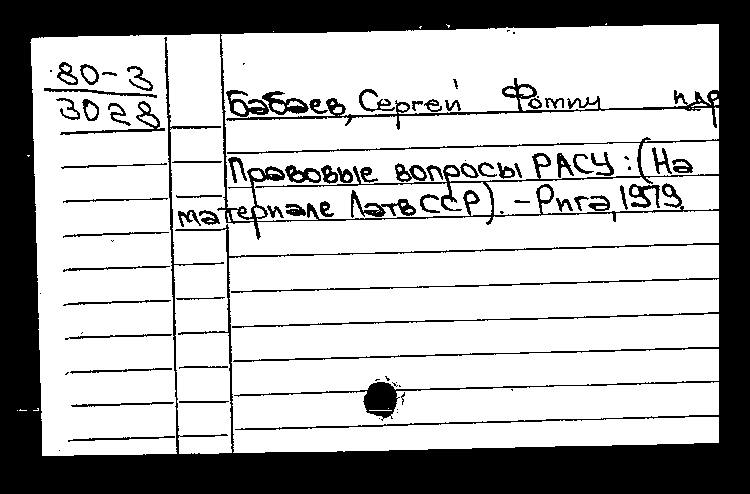 80-3
3028
Бабаев, Сергей Фомич и др
Правовые вопросы РАСУ : (На
материале ЛатвССР). - Рига, 1979.